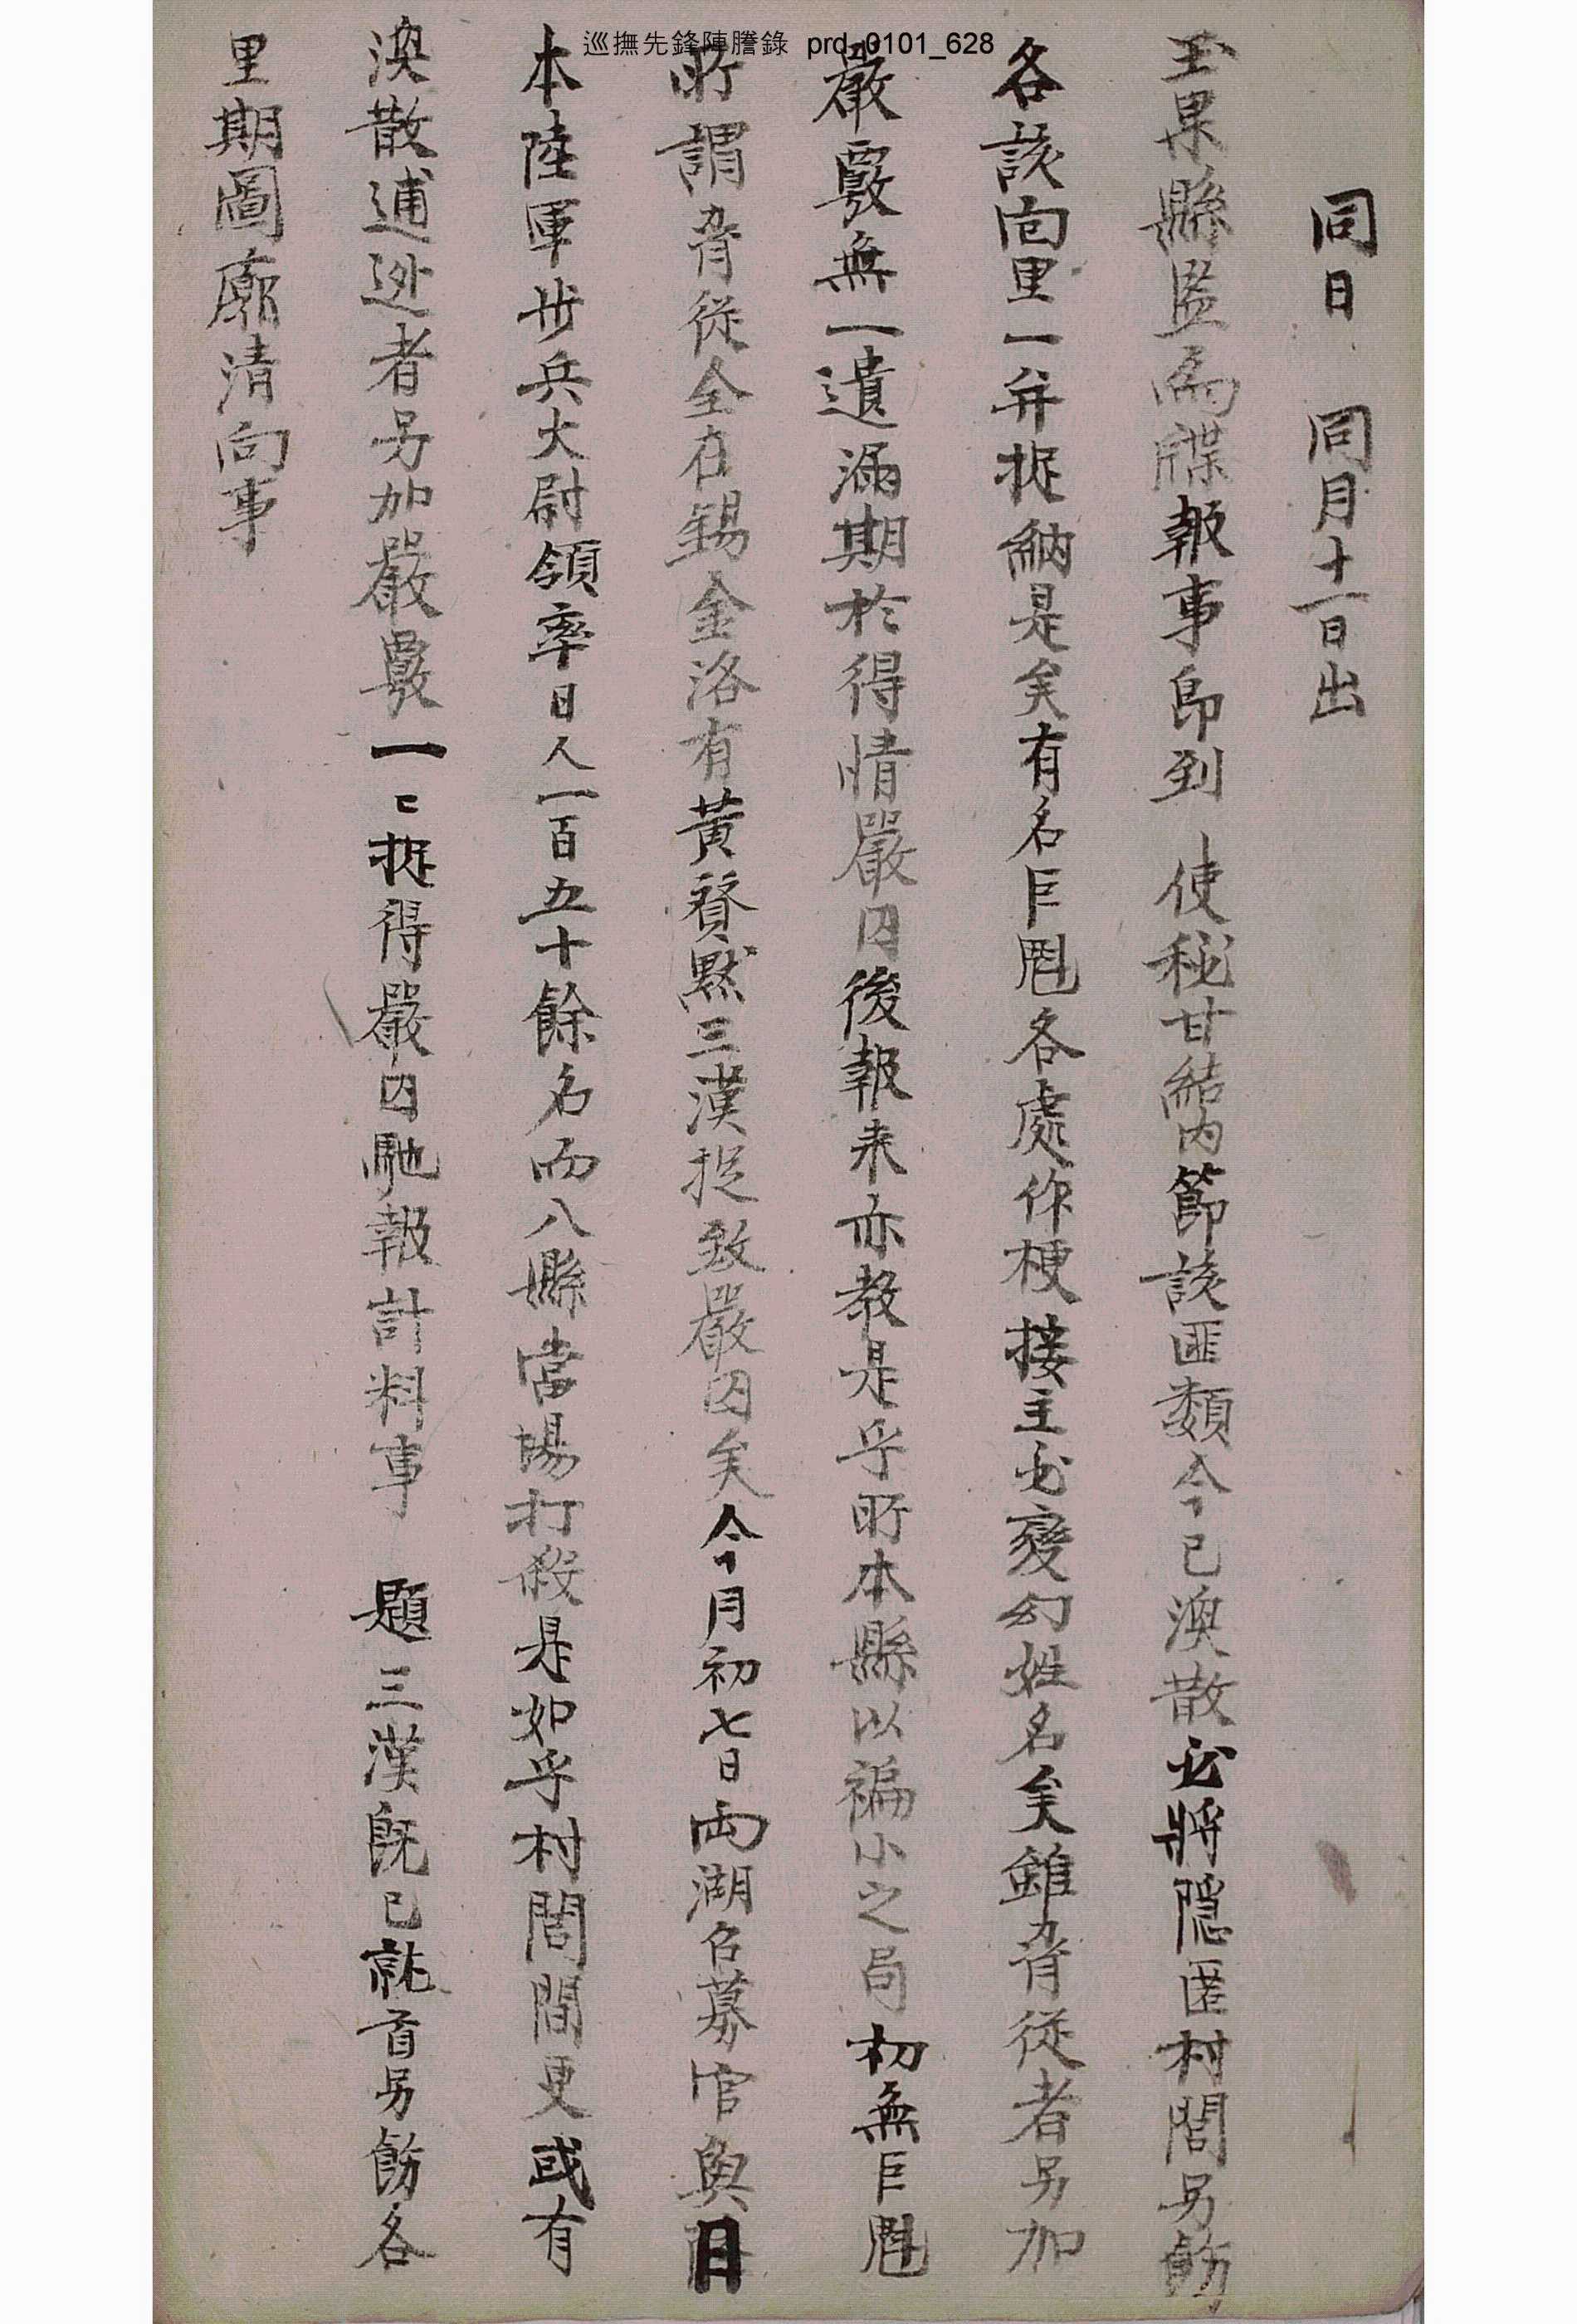 巡撫先鋒陣謄錄 prd_0101_628
同日 同月十一日出
玉果縣監爲牒報事卽到 使秘甘結內節該匪類今已渙散必將隱匿村閭另飭
各該面里一幷捉納是矣有名巨魁各處作梗接主必變幻姓名矣雖脅從者另加
嚴覈無一遺漏期於得情嚴囚後報來亦敎是乎所本縣以褊小之局初無巨魁
所謂脅從全在錫金洛有黃賛黙三漢捉致嚴囚矣今月初七日兩湖召募官與日
本陸軍步兵大尉領率日人一百五十餘名而八縣當場打殺是如乎村閭間更或有
渙散逋逃者另加嚴覈一〻捉得嚴囚馳報計料事 題 三漢旣已就首另飭各
里期圖廓淸向事